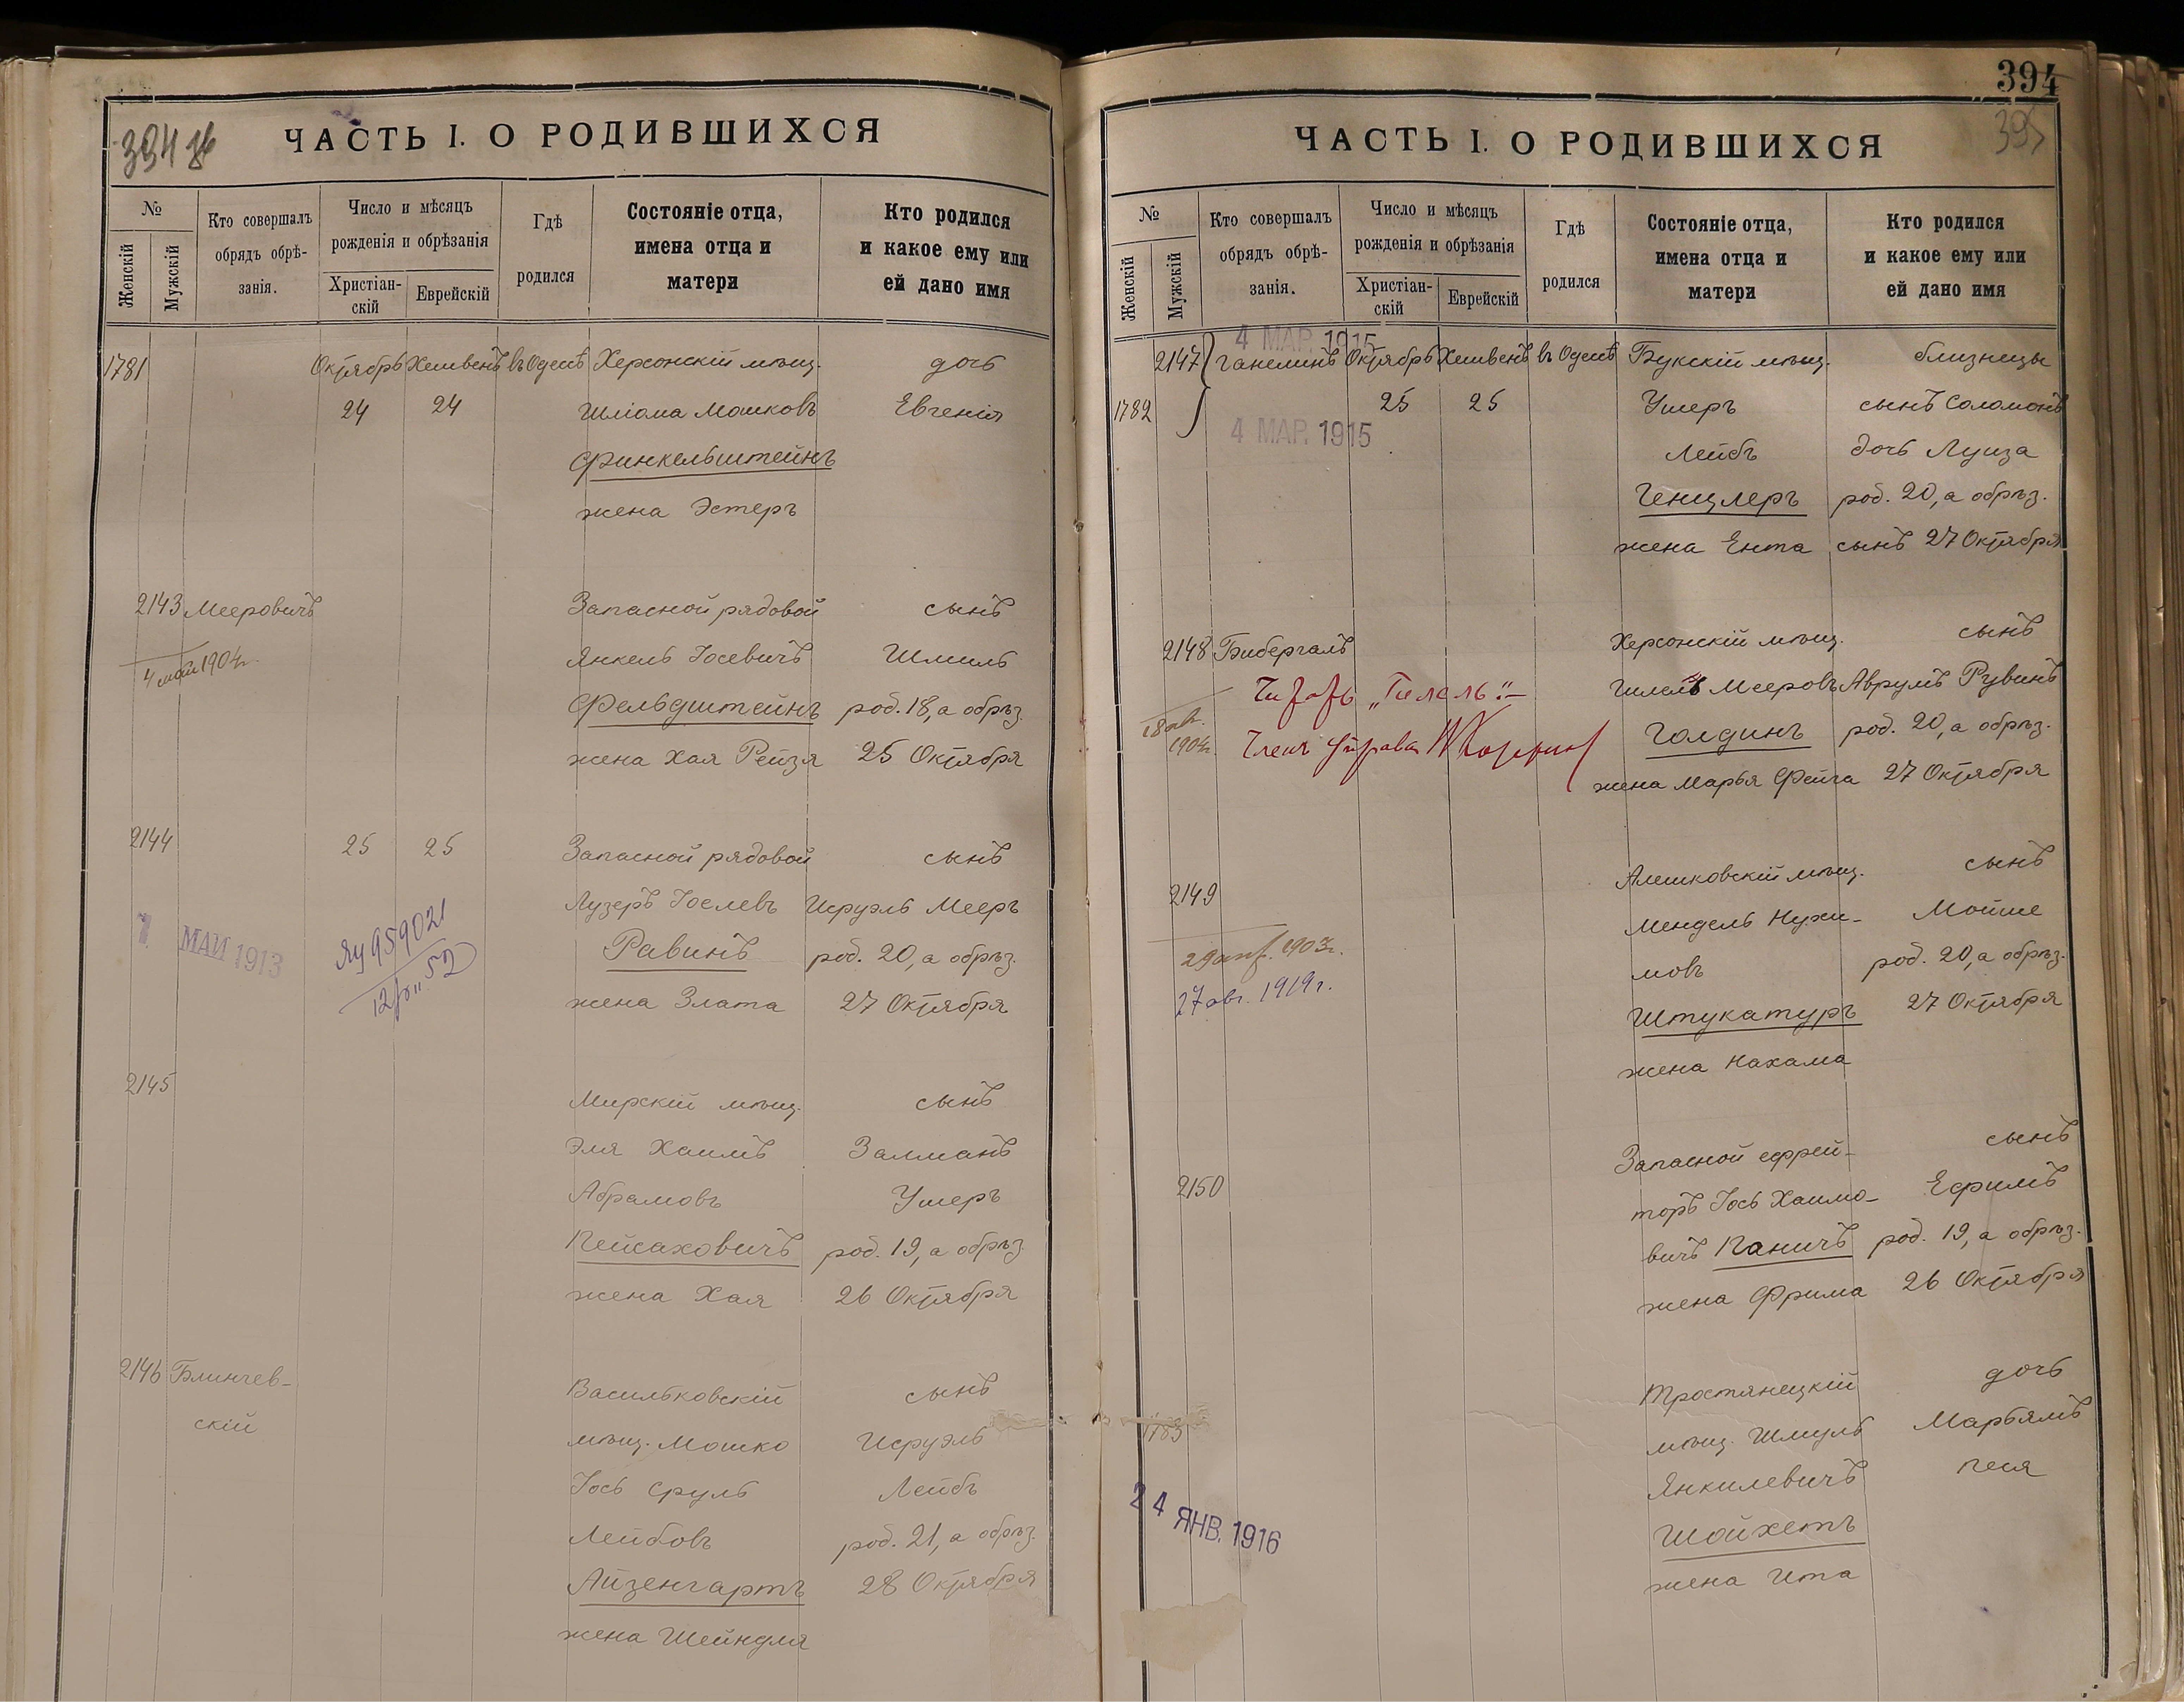 394 зв
ЧАСТЬ I. О РОДИВШИХСЯ
№
Женскій
Мужскій
Кто совершалъ
обрядъ обрѣ-
занія.
Число и мѣсяцъ
рожденія и обрѣзанія
Христіан-
скій
Еврейскій
Гдѣ
родился
Состояніе отца,
имена отца и
матери
Кто родился
и какое ему или
ей дано имя
1781 Октябрь Хешвенъ въ Одессѣ Херсонскій мѣщ. дочь
24 24 Шліома Мошковъ Евгенія
Финкельштейнъ
жена Эстеръ
2143 Мееровичъ Запасной рядовой сынъ
4 мая 1904г. Янкель Іосевичъ Шмиль
Фельдштейнъ род. 18, а обрѣз.
жена Хая Рейзя 25 Октября
2144 25 25 Запасной рядовой сынъ
Лузеръ Іоселевъ Исруэль Мееръ
7 МАЙ 1913 959021 Равинъ род. 20, а обрѣз.
12 52 жена Злата 27 Октября
2145 Мирскій мѣщ. сынъ
Эля Хаимъ Залманъ
Абрамовъ Ушеръ
Пейсаховичъ род. 19, а обрѣз.
жена Хая 26 Октября
2146 Блинчев-
скій
Васильковскій сынъ
мѣщ. Мошко Исруэль
Іось Сруль Лейбъ
Лейбовъ род. 21, а обрѣз.
Айзенгартъ 28 Октября
жена Шейндля
394
ЧАСТЬ I. О РОДИВШИХСЯ
№
Женскій
Мужскій
Кто совершалъ
обрядъ обрѣ-
занія.
Число и мѣсяцъ
рожденія и обрѣзанія
Христіан-
скій
Еврейскій
Гдѣ
родился
Состояніе отца,
имена отца и
матери
Кто родился
и какое ему или
ей дано имя
4 МАР. 1915
2147 Ганелинъ Октябрь Хешвенъ въ Одессѣ Букскій мѣщ. близнецы
1782 25 25 Ушеръ сынъ Соломонъ
4 МАР. 1915
Лейбъ дочь Луиза
Генцлеръ род. 20, а обрѣз.
жена Ента сынъ 27 Октября
2148 Бибергалъ Херсонскій мѣщ. сынъ
Читать „Гилель“ Гилель Мееровъ Аврумъ Рувинъ
18 авг. 1904г. Членъ Управы Голдинъ род. 20, а обрѣз.
жена Марья Фейга 27 Октября
2149 Алешковскій мѣщ. сынъ
Мендель Нухи- Мойше
29 апр. 1903г. мовъ род. 20, а обрѣз.
27 авг. 1919г. Штукатуръ 27 Октября
жена Нахама
2150 Запасной ефрей- сынъ
торъ Іось Хаимо- Ефримъ
вичъ Каничъ род. 19, а обрѣз.
жена Фрима 26 Октября
1783 Тростянецкій дочь
мѣщ. Шмуль Марьямъ
Янкилевичъ Песя
24 ЯНВ. 1916 Шойхетъ
жена Ита